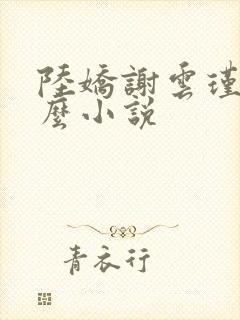 陸嬌謝雲瑾
麼小説
青衣行